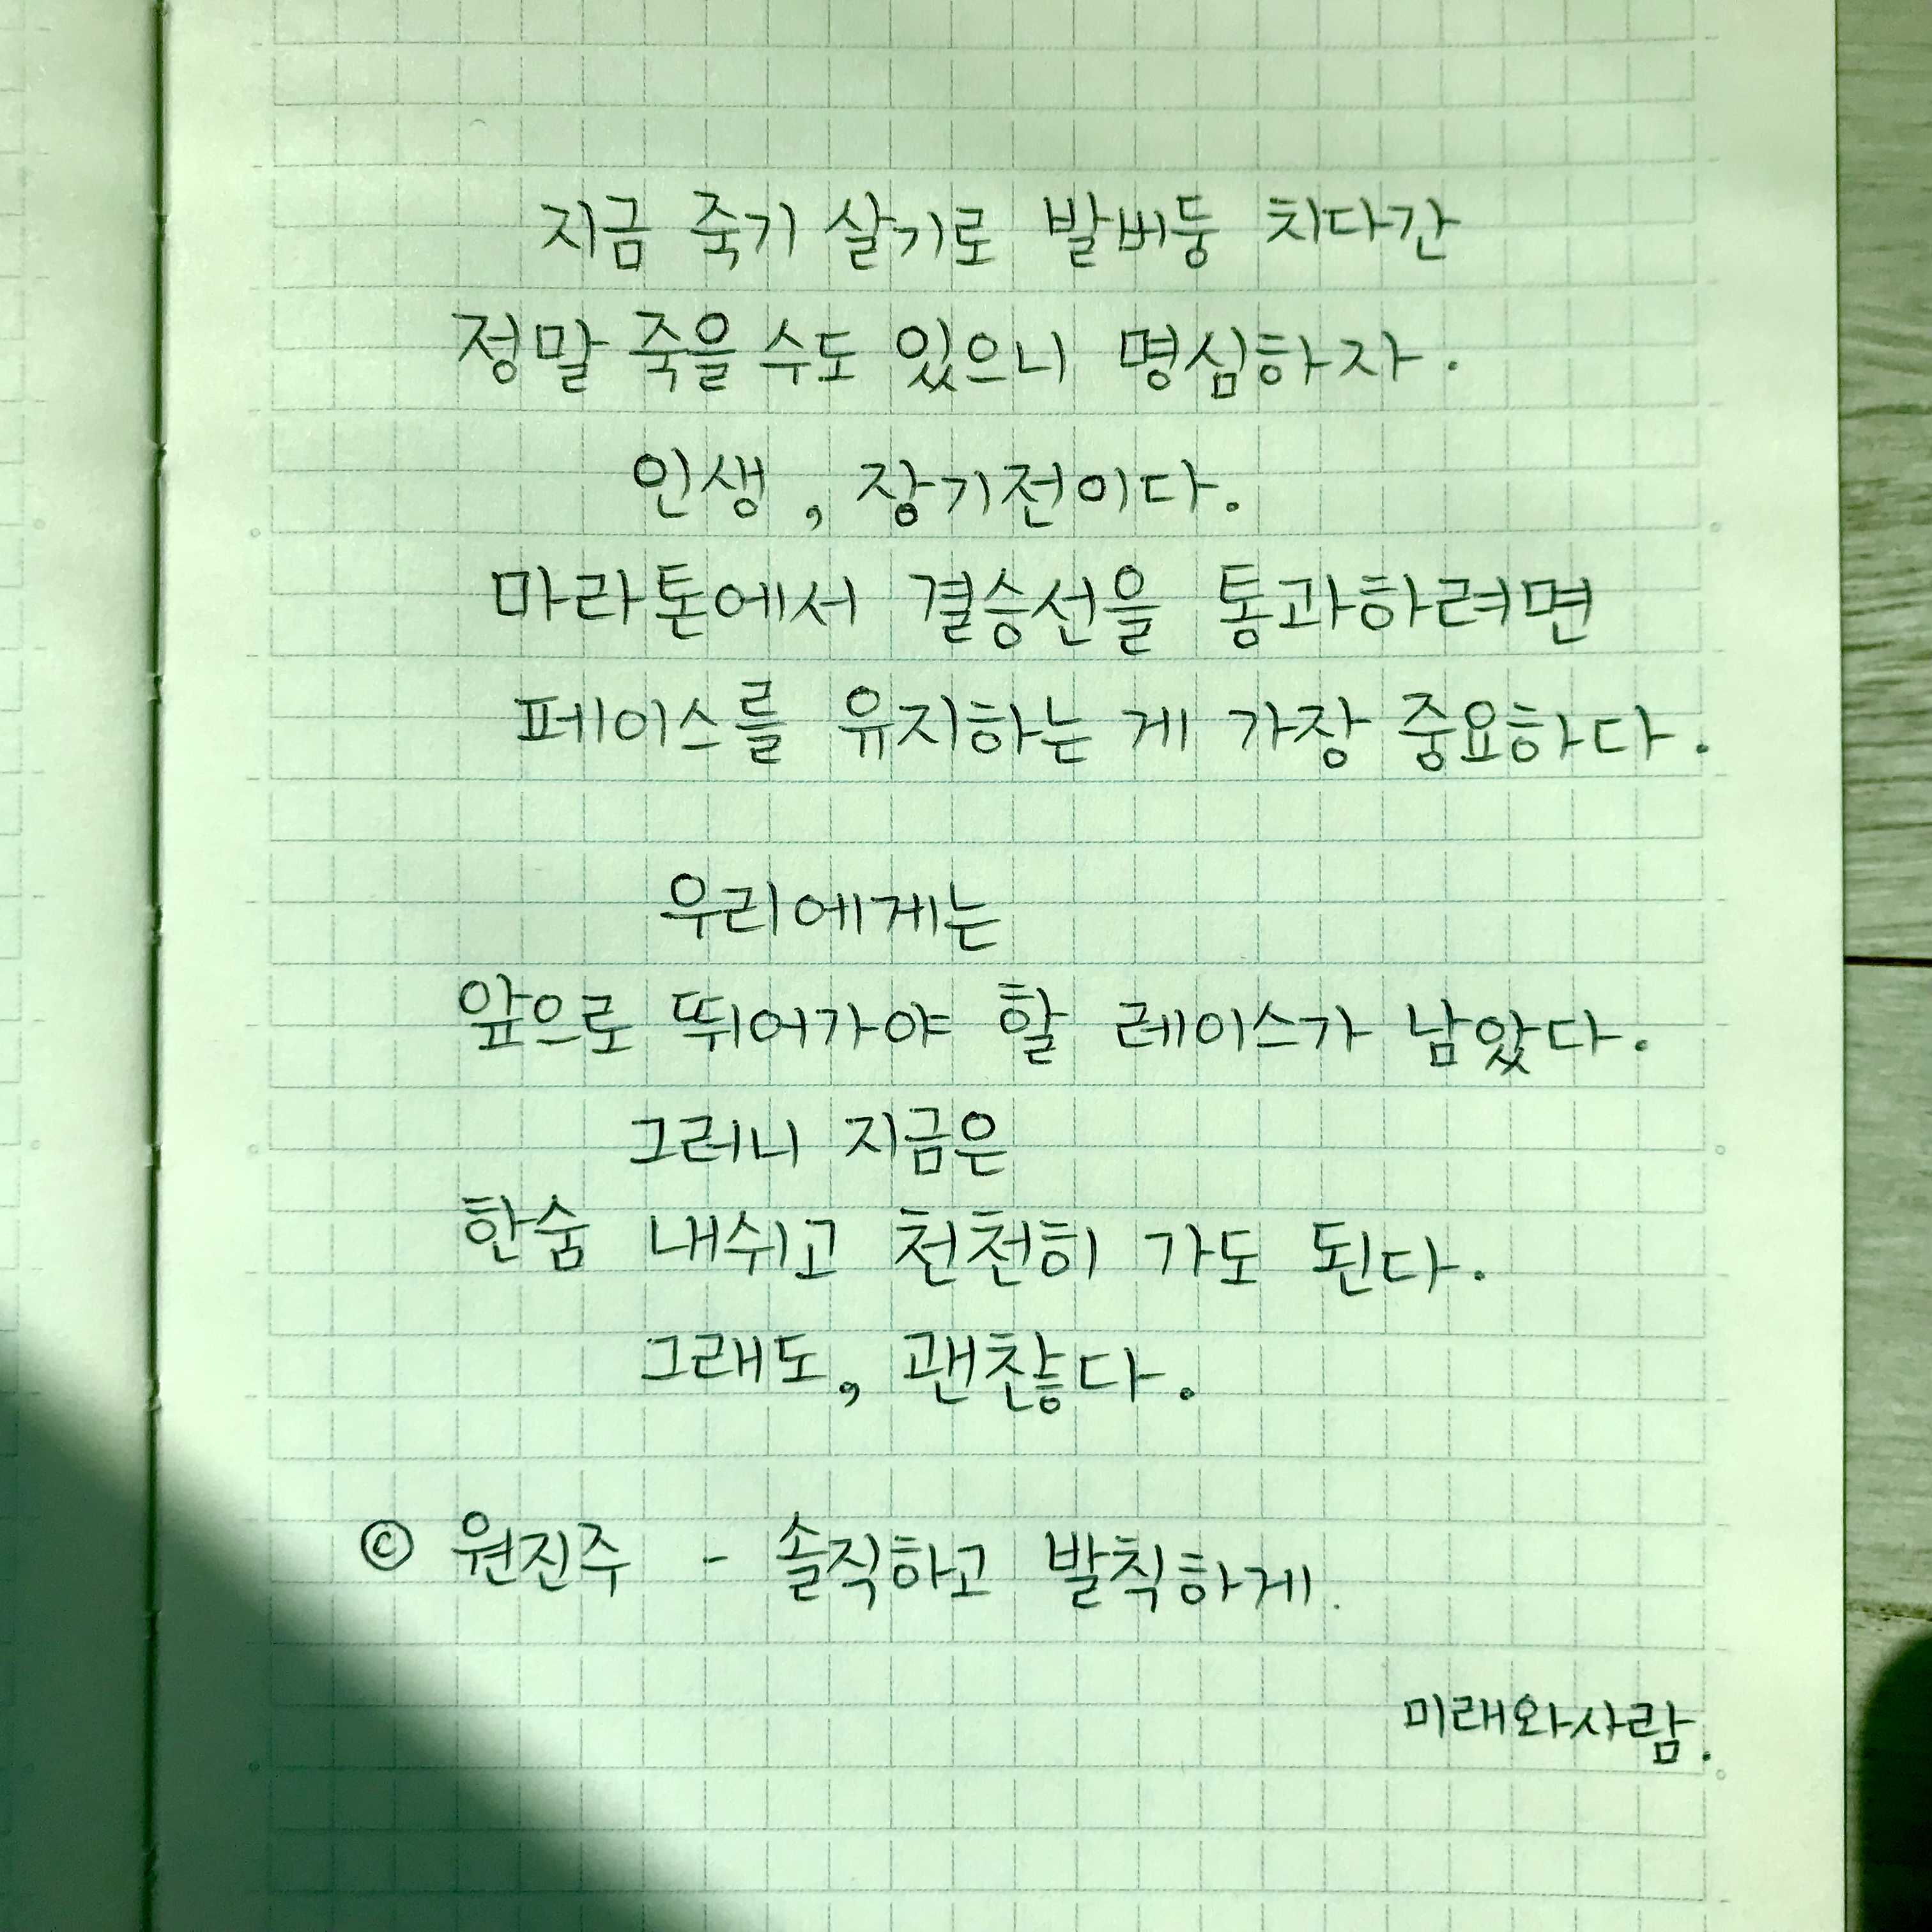 지금 죽기 살기로 발버둥 치다간
정말 죽을 수도 있으니 명심하자.
인생, 장기전이다.
마라톤에서 결승선을 통과하려면
페이스를 유지하는 게 가장 중요하다.
우리에게는
앞으로 뛰어가야 할 레이스가 남았다.
그러니 지금은
한숨 내쉬고 천천히 가도 된다.
그래도, 괜찮다.
© 원진주 - 솔직하고 발칙하게.
미래와사람.